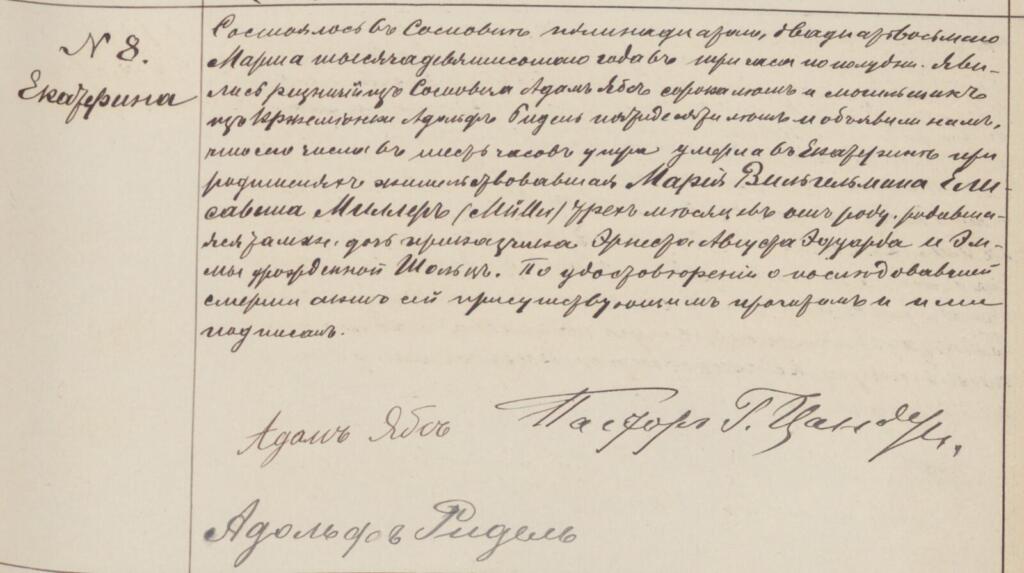 N 8.
Екатерина
Состоялось въ Сосновицѣ пятнадцатаго, двадцать восьмого
Марта тысяча девятисотаго года въ три часа по полудни. Яви-
лись рѣзничій изъ Сосновица Адамъ Ябсъ сорока лѣтъ и могильщикъ
изъ Кржеміонки Адольфъ Ридель пятидесяти лѣтъ и объявили намъ,
что сего числа въ шесть часовъ утра умерла въ Екатеринѣ при
родителяхъ жительствовавшая Марія Вильгельмина Ели-
савета Миллеръ /Müller/ трехъ мѣсяцевъ отъ роду, родивша-
яся тамже, дочь приказчика Эрнеста Августа Эдуарда и Эм-
мы урожденной Шольцъ. По удостовѣреніи о послѣдовавшей
смерти актъ сей присутствующимъ прочитанъ и ими
подписанъ.
Адамъ Ябсъ
Пасторъ Г. Цандеръ.
Адольфъ Ридель